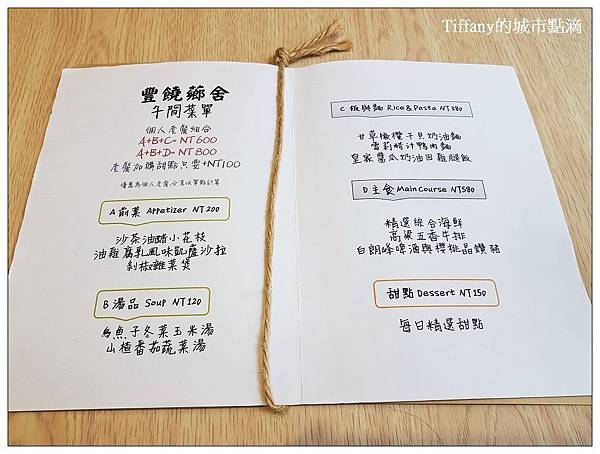 Tiffany的城市點滴
豐饒鄉舍
午間菜單
個人套餐組合
A+B+C= NT600
A+B+D= NT800
套餐加購甜點只要+NT100
優惠為個人套餐,分享以單點計算
A 前菜 Appetizer NT 200
沙茶油醋小花枝
油雞腐乳風味凱薩沙拉
剁椒雜菜煲
B 湯品 Soup NT 120
烏魚子冬菜玉米湯
山楂番茄蔬菜湯
C 飯與麵 Rice & Pasta NT 380
甘草橄欖干貝奶油麵
雪莉醋汁鴨肉麵
皇家醬瓜奶油田雞腿飯
D 主食 Main Course NT580
精選綜合海鮮
高粱五香牛排
白朗峰啤酒與櫻桃晶鑽豬
甜點 Dessert NT 150
每日精選甜點